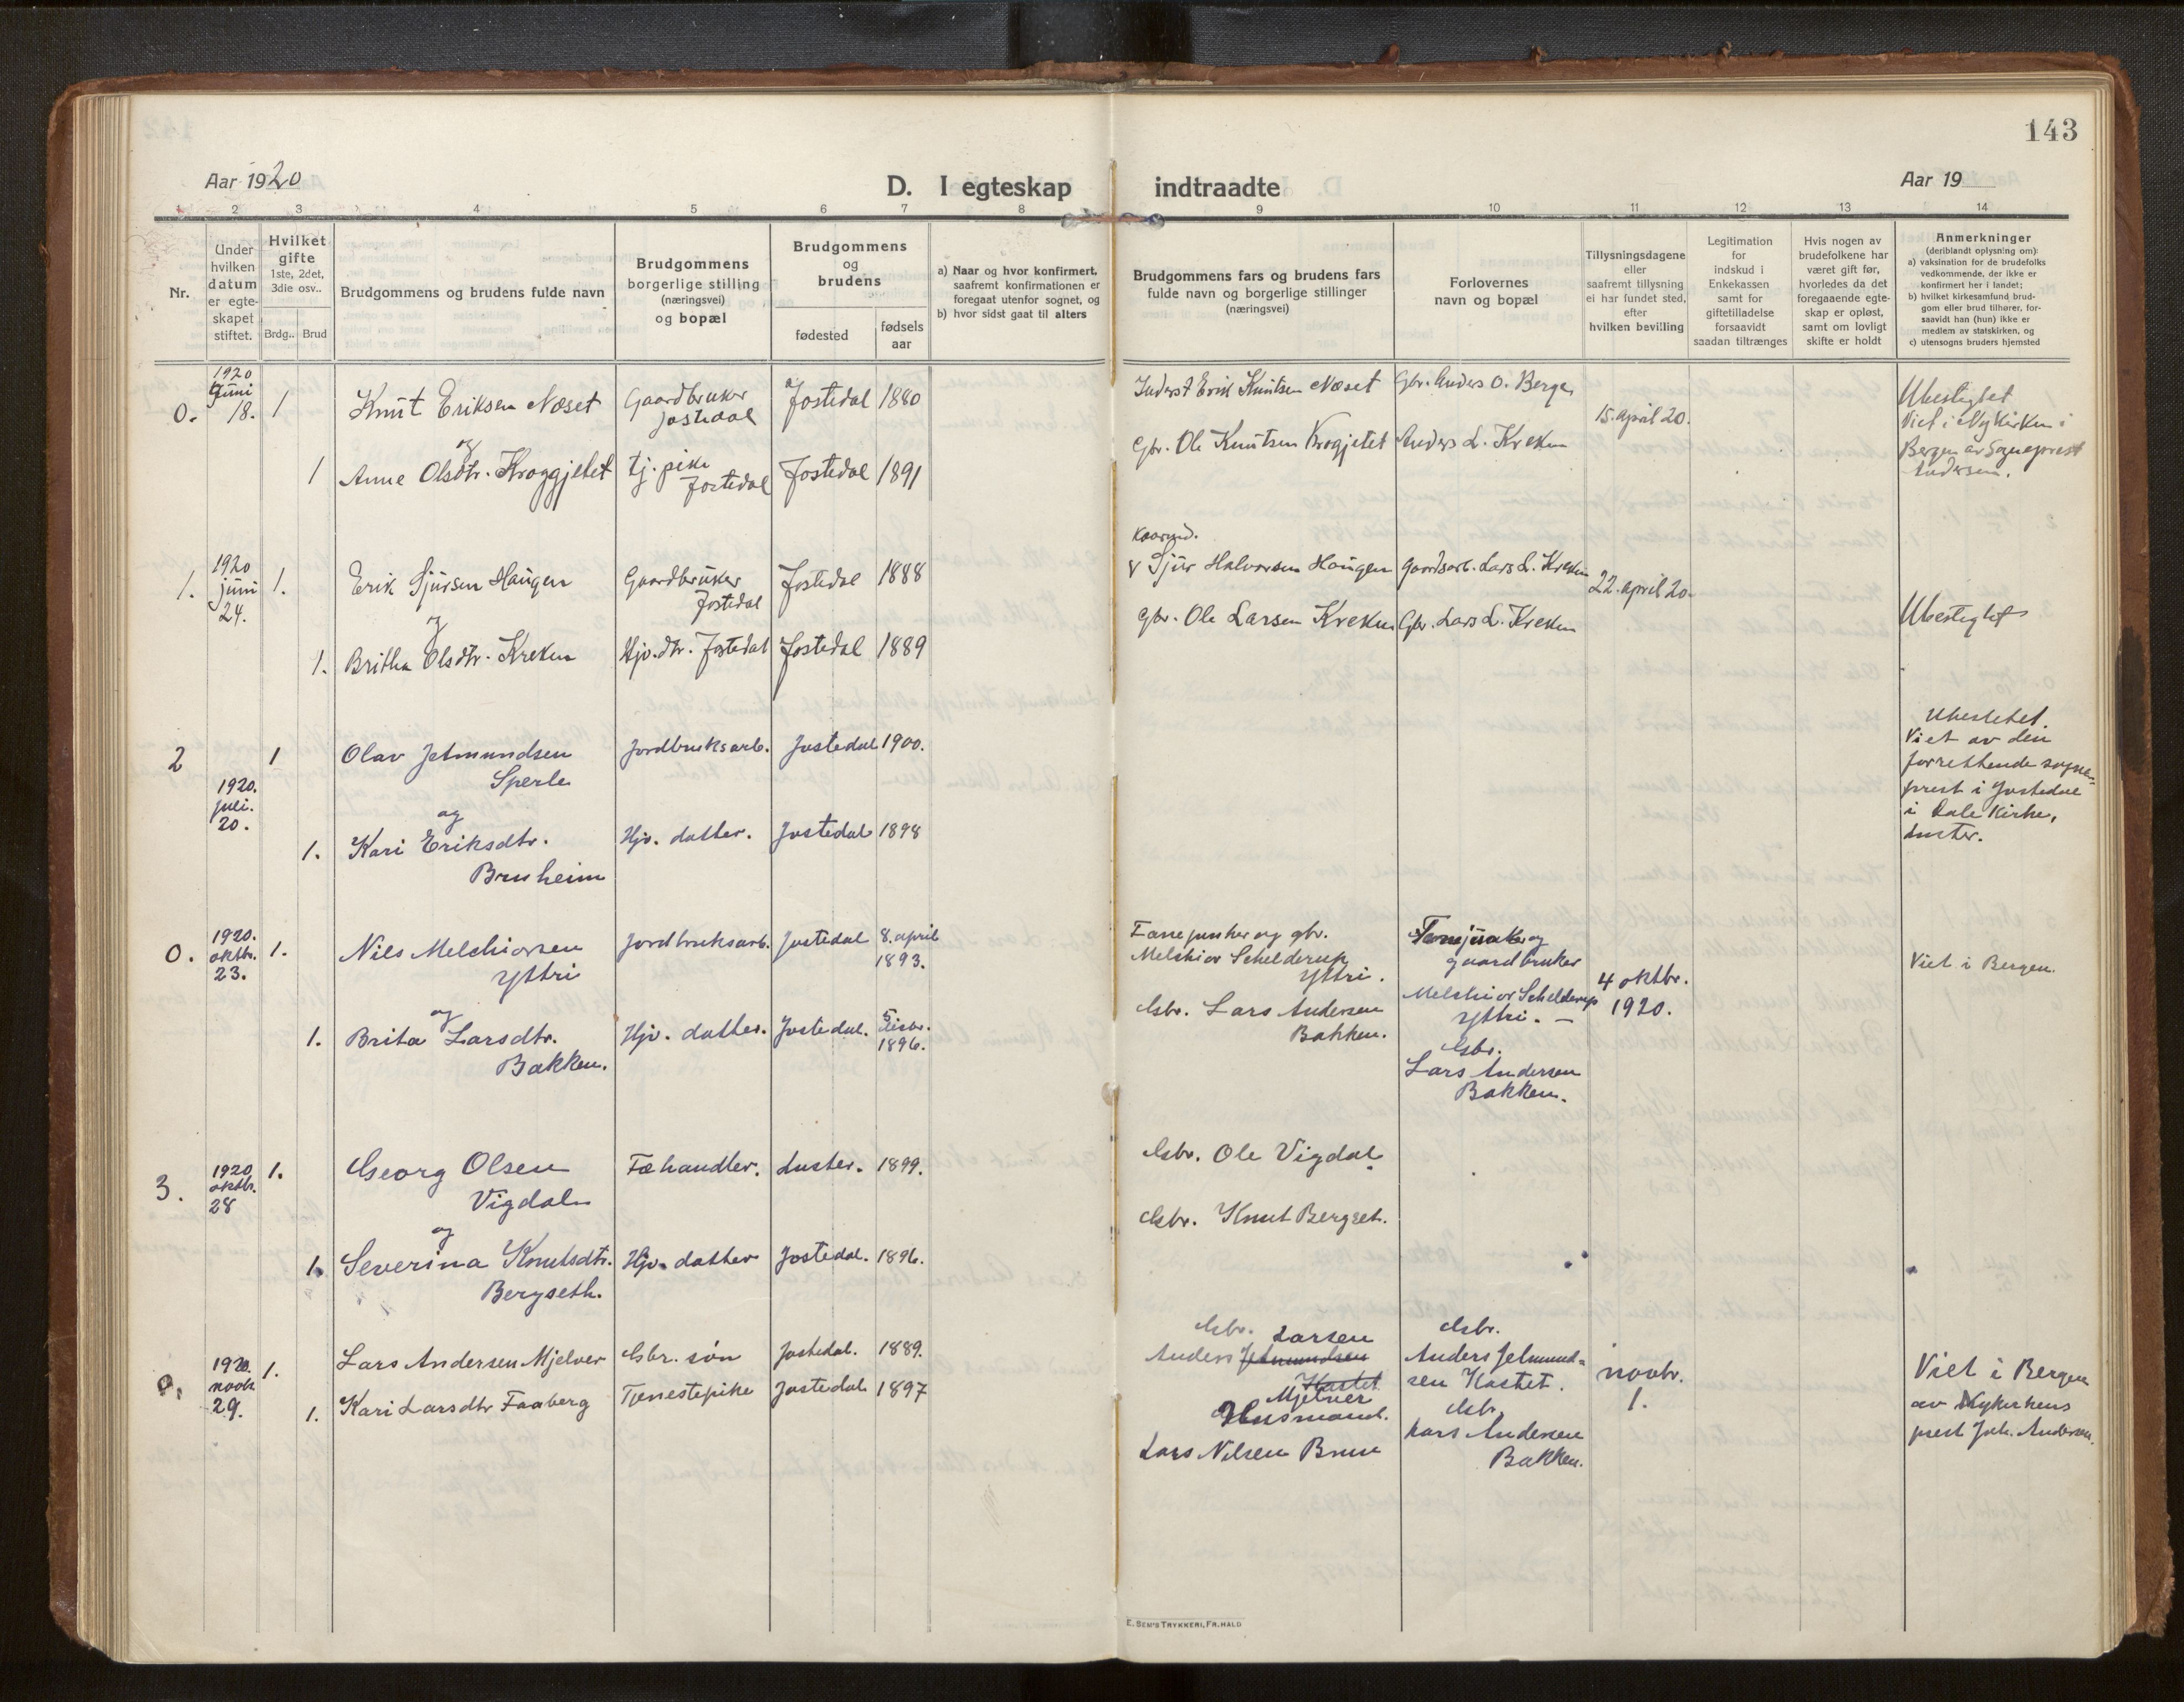 143
Aar 1920
D. I egteskap
indtraadte
Aar 19
1 2 3 4 5 6 7 8 9 10 11 12 13 14
Nr.
Under
hvilken
datum
er egte-
skapet
stiftet.
Hvilket
gifte
1ste, 2det,
3die osv..
Brdg..
Brud
Brudgommens og brudens fulde navn
Brudgommens
borgerlige stilling
(næringsvei)
og bopæl
Brudgommens
og
brudens
fødested
fødsels
aar
a) Naar og hvor konfirmert,
saafremt konfirmationen er
foregaat utenfor sognet, og
b) hvor sidst gaat til alters
Brudgommens fars og brudens fars
fulde navn og borgerlige stillinger
(næringsvei)
Forlovernes
navn og bopæl
Tillysningsdagene
eller
saafremt tillysning
ei har fundet sted,
efter
hvilken bevilling
Legitimation
for
indskud i
Enkekassen
samt for
giftetilladelse
forsaavidt
saadan tiltrænges
Hvis nogen av
brudefolkene har
været gift før,
hvorledes da det
foregaaende egte-
skap er opløst,
samt om lovligt
skifte er holdt
Anmerkninger
(deriblandt oplysning om):
a) vaksination for de brudefolks
vedkommende, der ikke er
konfirmert her i landet;
b) hvilket kirkesamfund brud-
gom eller brud tilhører, for-
saavidt han (hun) ikke er
medlem av statskirken, og
c) utensogns bruders hjemsted
0.
1920
Juni
18.
1
Knut Eriksen Næset
Gaardbruker
Jostedal
Jostedal
1880
Inderst Erik Knutsen Næset
Gbr. Anders O. Berge
15. april 20.
Ubeslegtet
Viet i Nykirken i
Bergen av Sogneprest
Andersen.
og
1
Anne Olsdtr. Kroggjelet
tj. pike
Jostedal
Jostedal
1891
Gbr. Ole Knutsen Krogjelet
Anders L. Kreken
1.
1920
juni
24.
1.
Erik Sjursen Haugen
Gaardbruker
Jostedal
Jostedal
1888
Kaarmd.
Sjur Halvorsen Haugen
Gaardsarb. Lars L. Kreken
22. april 20.
Ubeslegtet
og
1.
Britha Olsdtr. Kreken
Hjv. dtr. Jostedal
Jostedal
1889
Gbr. Ole Larsen Kreken
Gbr. Lars L. Kreken
2
1920.
juli.
20.
1
Olav Jetmundsen
Sperle
Jordbruksarb.
Jostedal
1900.
Viet av den
forrettende sogne-
prest i Jostedal
i Dale Kirke,
Luster.
og
1.
Kari Eriksdtr.
Bruheim
Hjv. datter.
Jostedal
1898
0.
1920.
oktbr.
23.
1.
Nils Melchiorsen
Yttri
Jordbruksarb.
Jostedal
8. april
1893.
og gbr.
Melchior Schelderup
Yttri.
og
gaardbruker
Melchior Schelderup
Yttri. –
4 oktbr.
1920.
Viet i Bergen.
og
1.
Brita Larsdtr.
Bakken.
Hjv. datter.
Jostedal.
1896.
Gbr. Lars Andersen
Bakken.
Gbr.
Lars Andersen
Bakken.
3.
1920
oktbr.
28
1.
Georg Olsen
Vigdal
Fæhandler.
Luster.
1899.
Gbr. Ole Vigdal
og
1.
Severina Knutsdtr.
Bergseth.
Hjv. datter
Jostedal.
1896.
Gbr. Knut Bergset.
0.
1920.
novbr.
29.
1.
Lars Andersen Mjelver
Gbr. søn
Jostedal.
1889.
Gbr. Larsen
Anders Jetmundsen
Kastet
Mjelver
Gbr.
Anders Jetmund-
sen Kastet.
novbr.
1.
Viet i Bergen
av Nykirkens
prest Joh. Andersen.
1.
Kari Larsdtr Faaberg
Tjenestepike
Jostedal
1897
Husmand.
Lars Nilsen Bruu
Gbr.
Lars Andersen
Bakken.
E. SEM'S TRYKKERI, FR.HALD